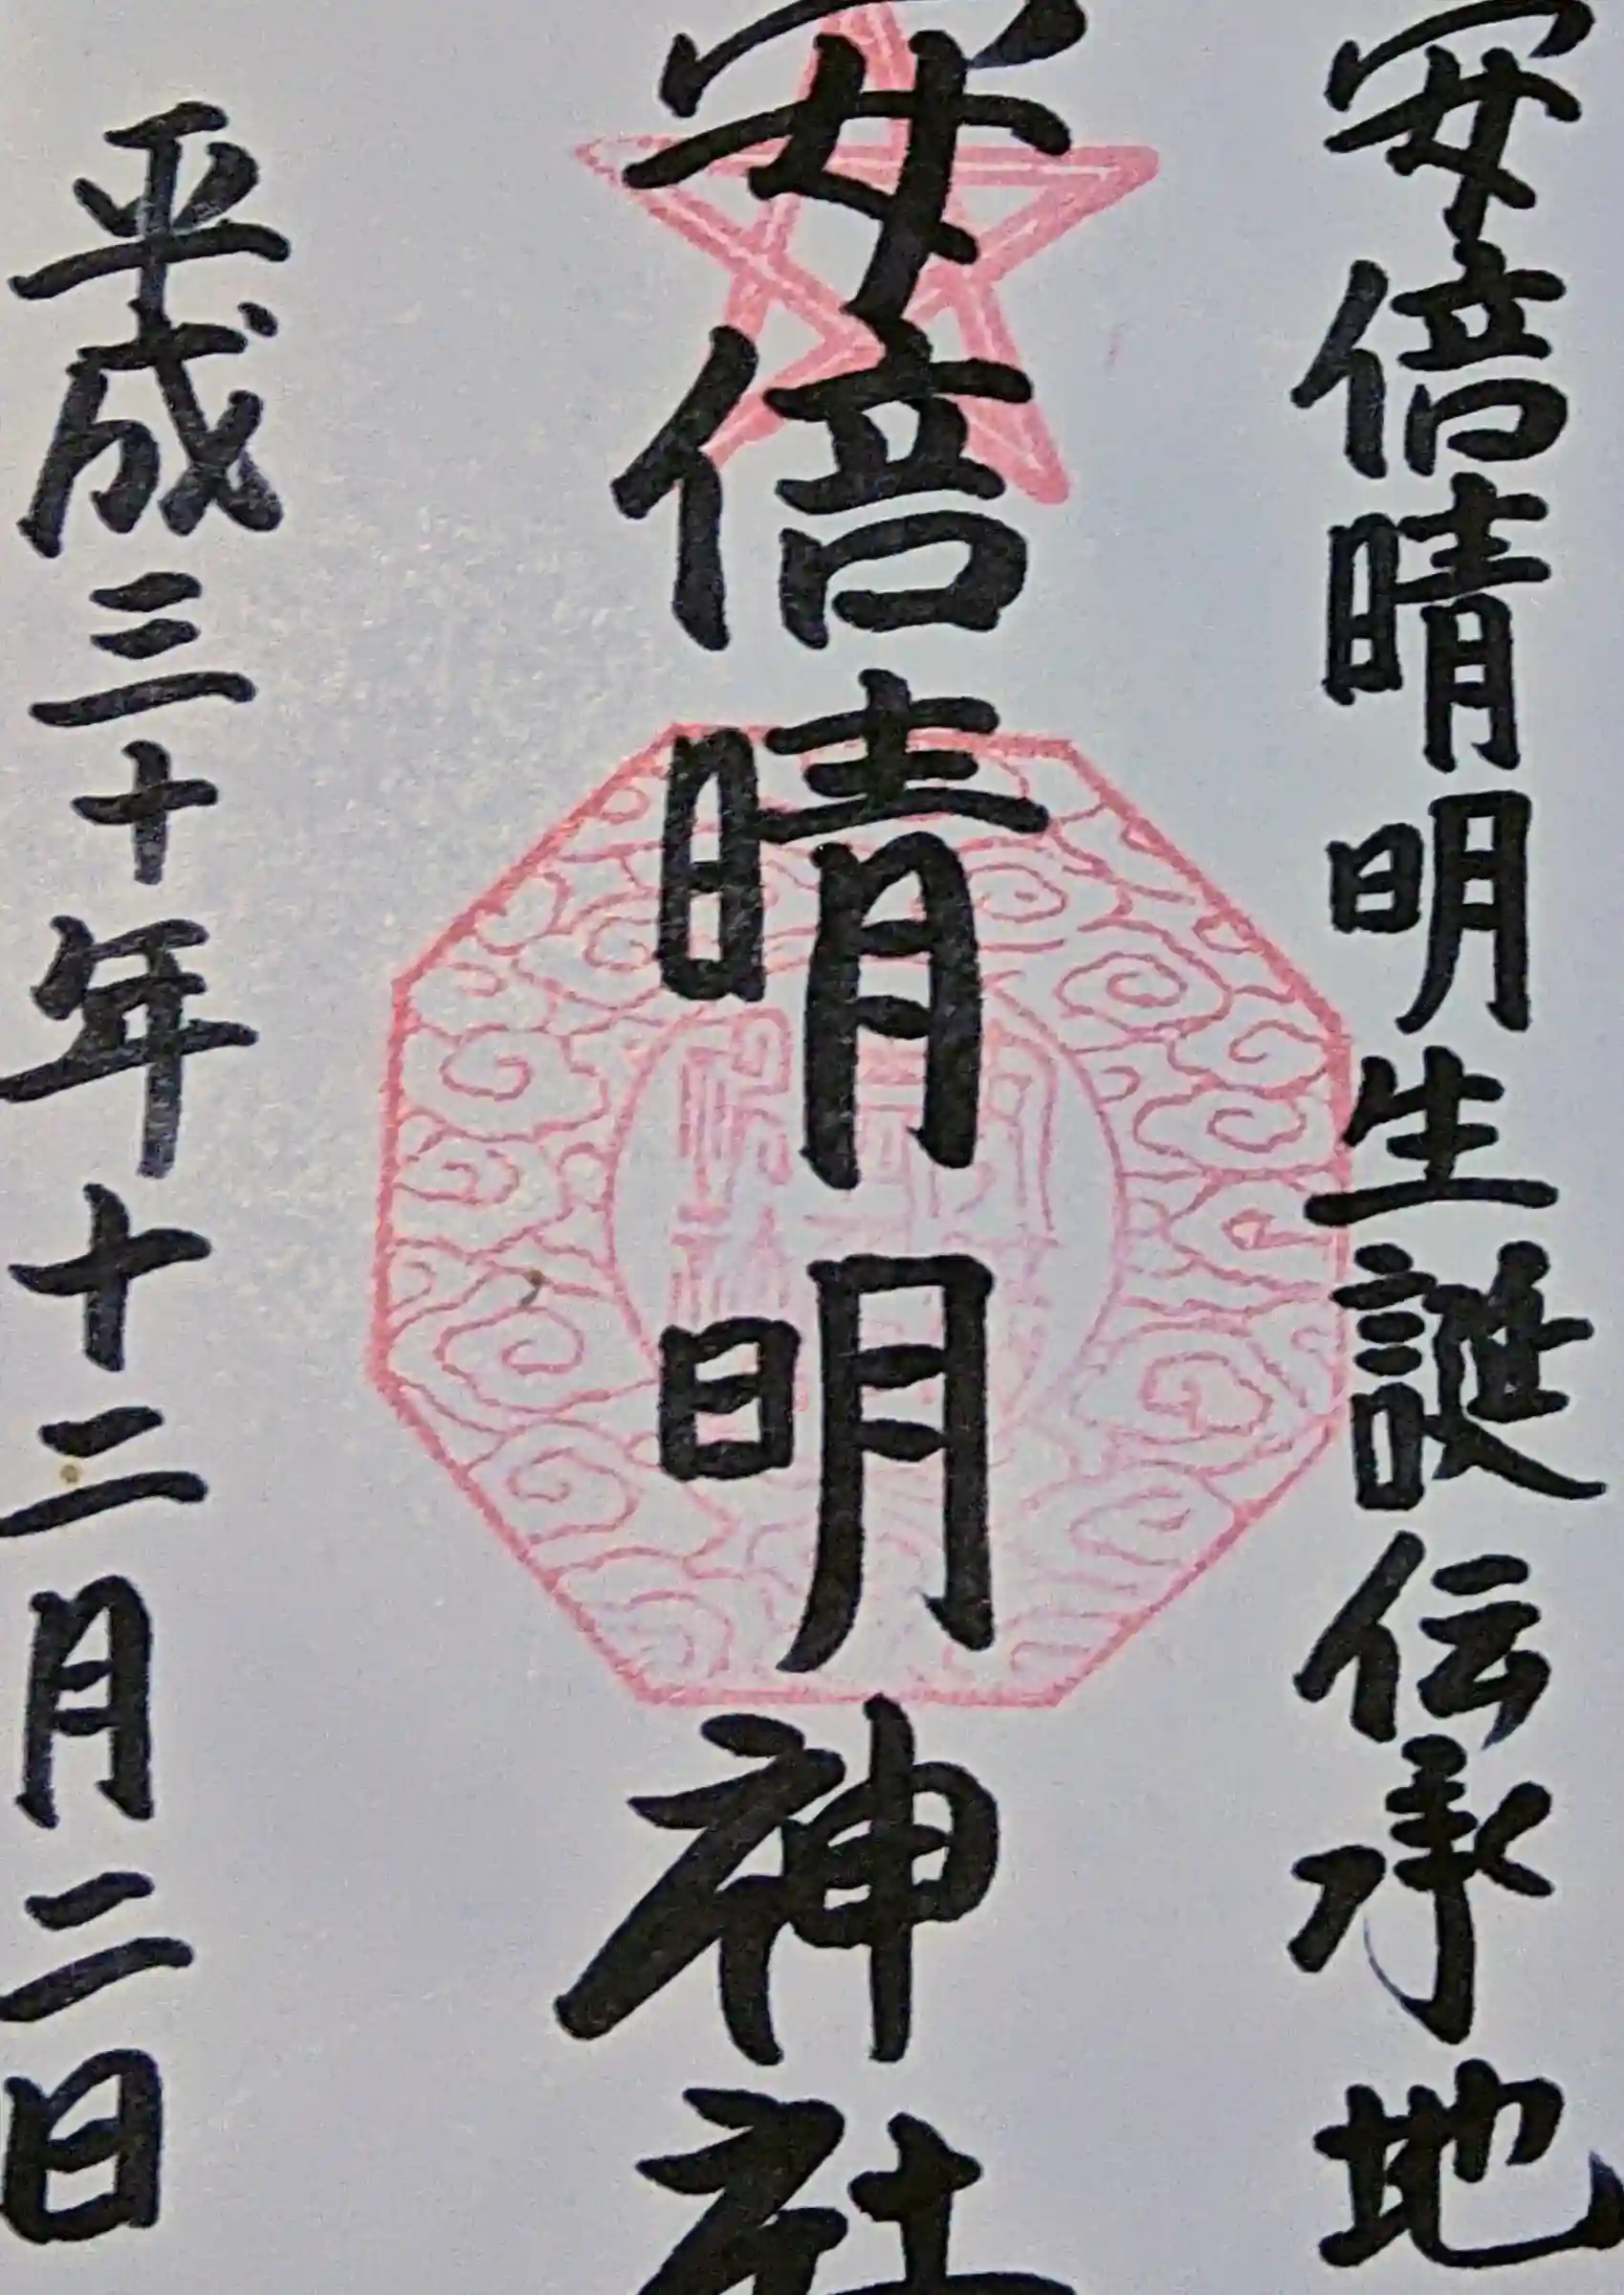 安倍晴明生誕伝承地
安倍晴明神社
平成三十年十二月二日